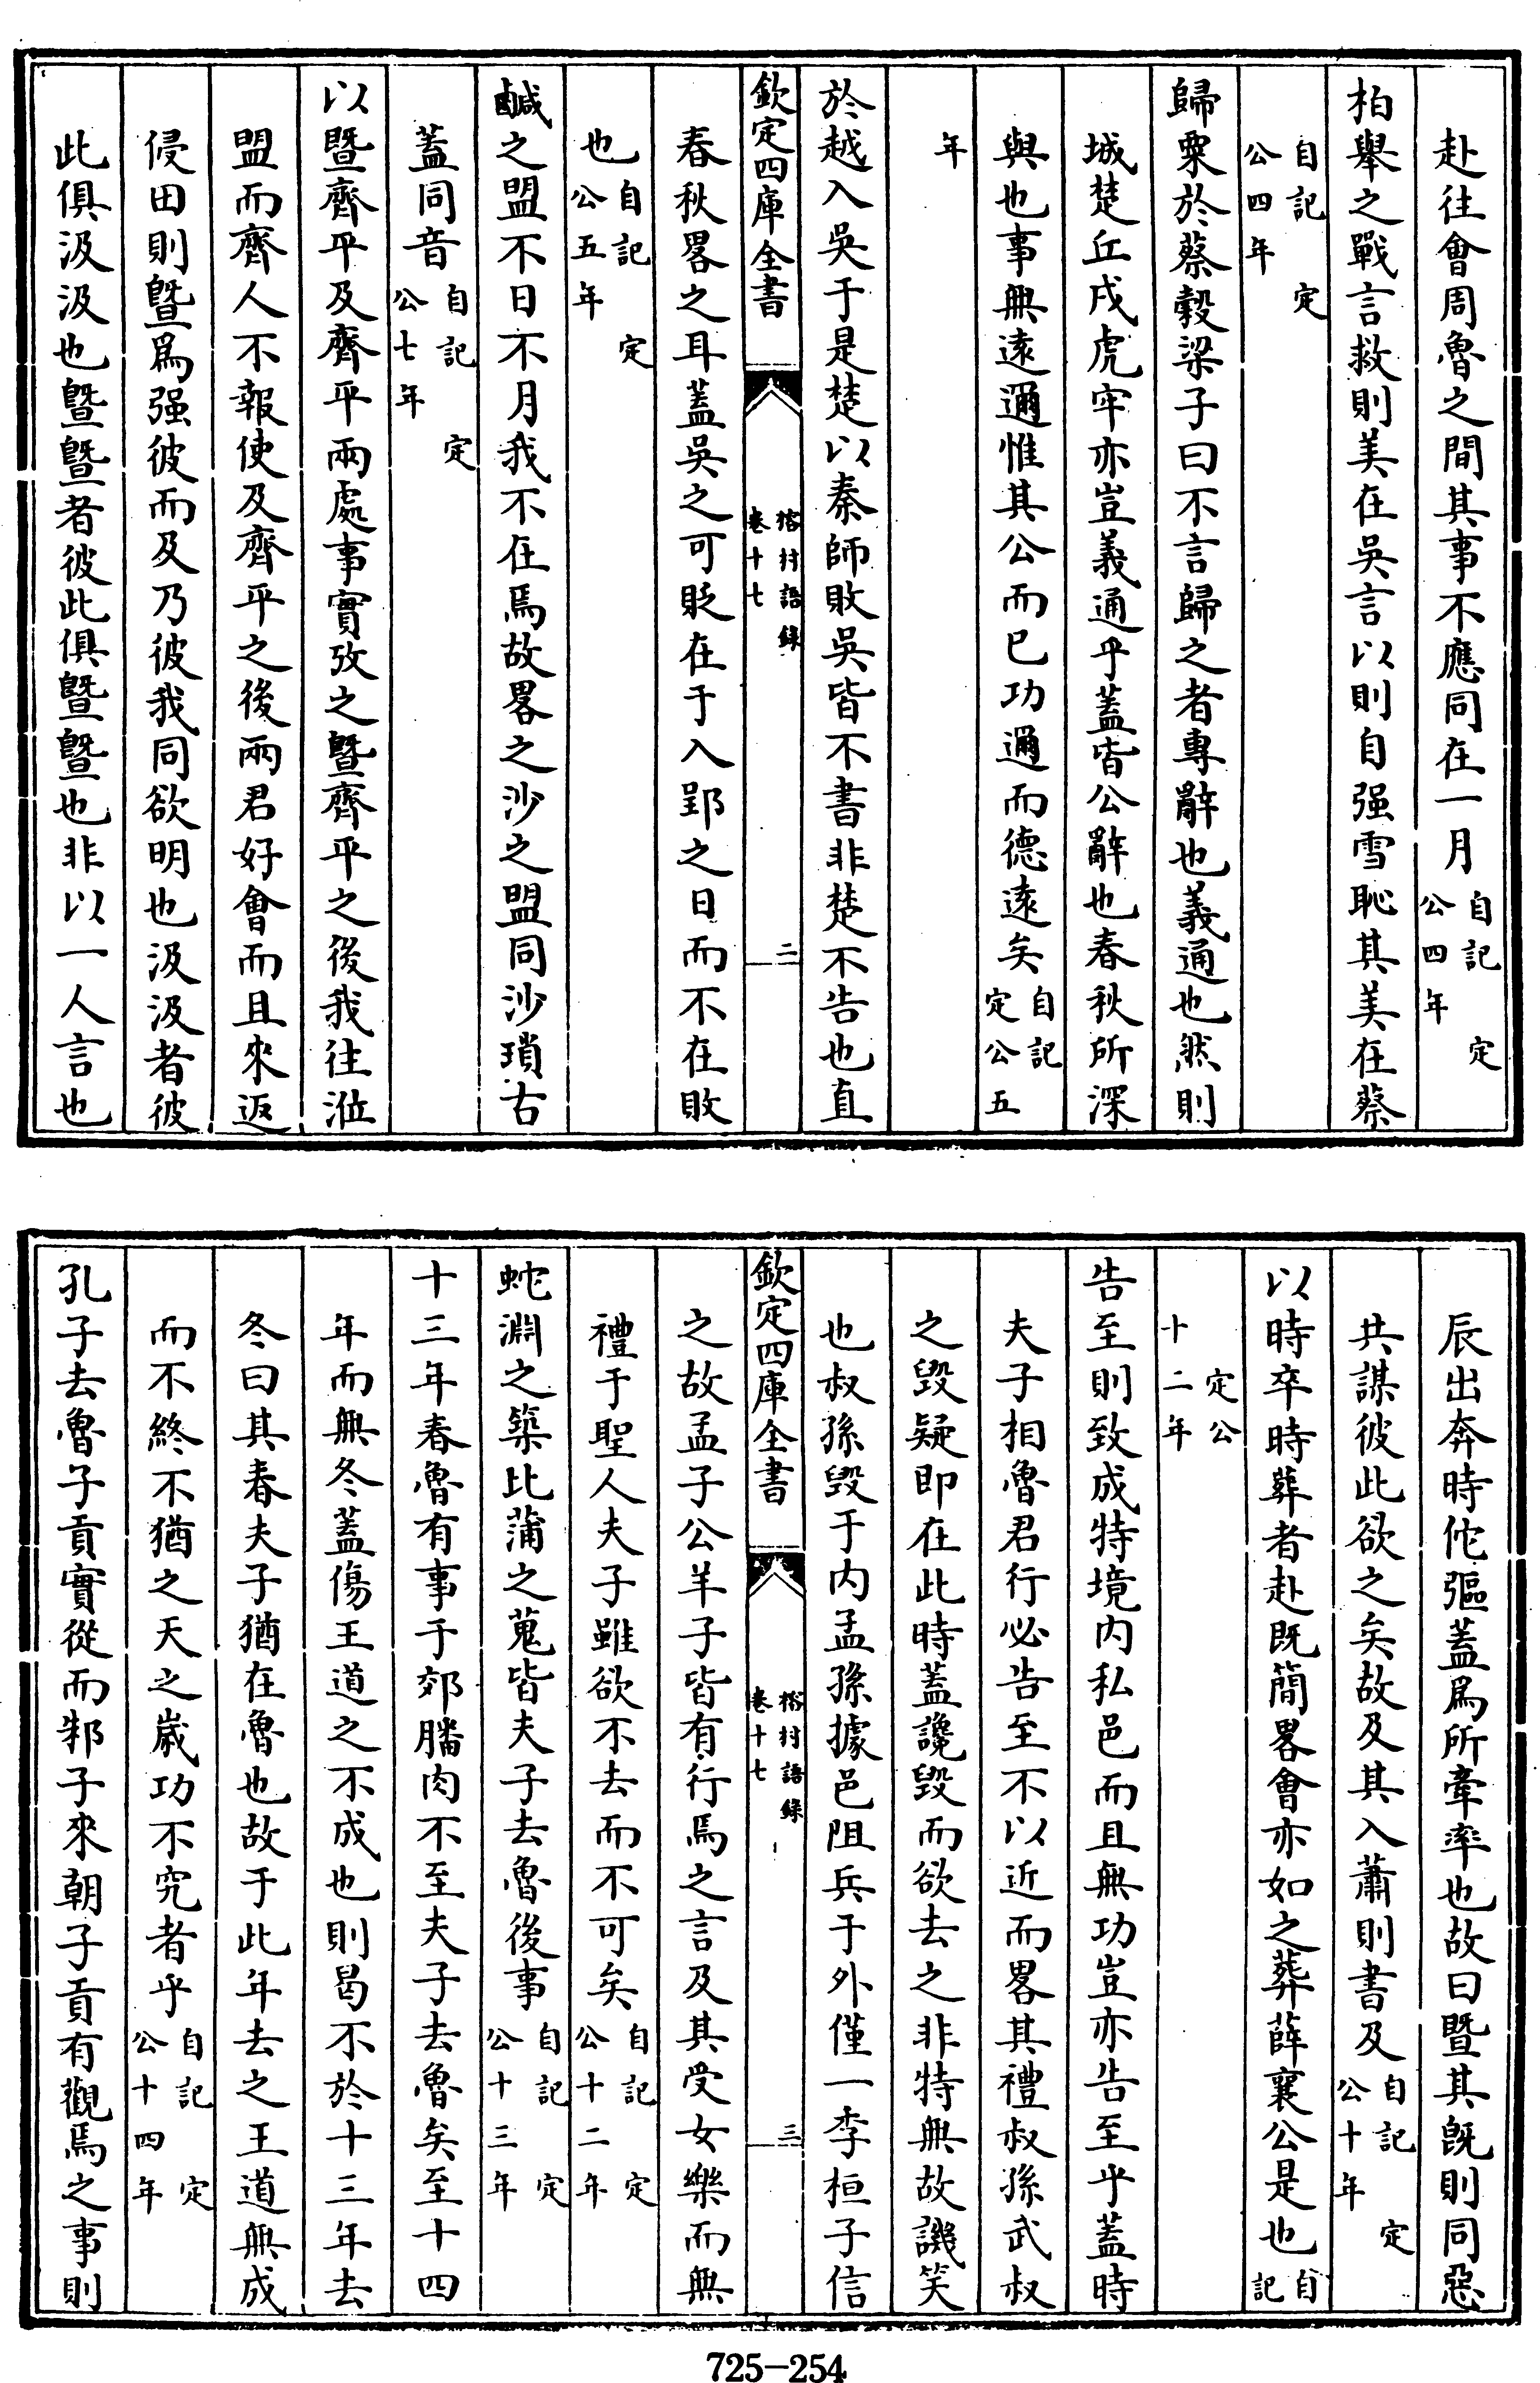 赴往會周魯之間其事不應同在一月自記定公四年
柏舉之戰言救則美在吳言以則自强雪恥其美在蔡
自記定公四年
歸粟於蔡穀梁子曰不言歸之者專辭也義通也然則
城楚丘戍虎牢亦豈義通乎蓋皆公辭也春秋所深
與也事無遠邇惟其公而已功邇而德遠矣自記定公五
年
於越入吳于是楚以秦師敗吳皆不書非楚不告也直
欽定四庫全書
榕村語錄
卷十七
二
春秋畧之耳蓋吳之可貶在于入郢之日而不在敗
也自記定公五年
鹹之盟不日不月我不在焉故畧之沙之盟同沙瑣古
蓋同音自記定公七年
以暨齊平及齊平兩處事實攷之暨齊平之後我往涖
盟而齊人不報使及齊平之後兩君好會而且來返
侵田則曁爲强彼而及乃彼我同欲明也汲汲者彼
此俱汲汲也曁曁者彼此俱曁曁也非以一人言也
辰出奔時佗彄蓋爲所牽率也故曰暨其旣則同惡
共謀彼此欲之矣故及其入蕭則書及自記定公十年
以時卒時葬者赴既簡畧會亦如之葬薛襄公是也自記
定公十二年
告至則致成特境内私邑而且無功豈亦告至乎蓋時
夫子相魯君行必告至不以近而畧其禮叔孫武叔
之毀疑即在此時蓋讒毀而欲去之非特無故譏笑
也叔孫毀于内孟孫據邑阻兵于外僅一季桓子信
欽定四庫全書
榕村語錄
卷十七
三
之故孟子公羊子皆有行焉之言及其受女樂而無
禮于聖人夫子雖欲不去而不可矣自記定公十二年
蛇淵之築比蒲之蒐皆夫子去魯後事自記定公十三年
十三年春魯有事于郊膰肉不至夫子去魯矣至十四
年而無冬蓋傷王道之不成也則曷不於十三年去
冬曰其春夫子猶在魯也故于此年去之王道無成
而不終不猶之天之歲功不究者乎自記定公十四年
孔子去魯子貢實從而邾子來朝子貢有觀焉之事則
725-254